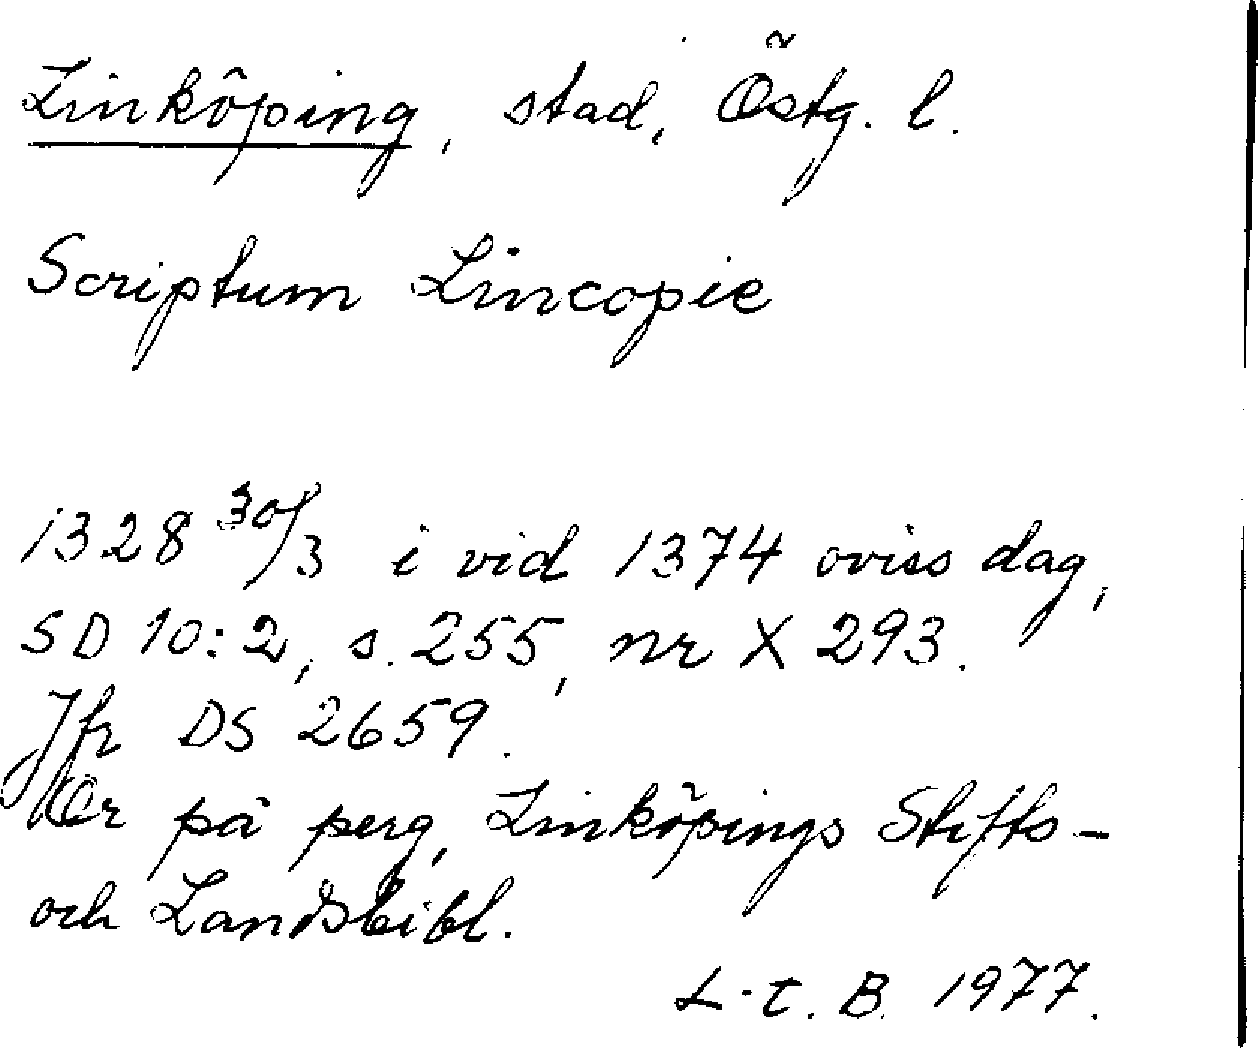 Linköping, stad, Östg. l.
Scriptum Lincopie
1328 30/3 i vid 1374 oviss dag,
SD 10:2, s. 255, nr X 293.
Jfr DS 2659.
Or på perg, Linköpings Stifts-
och Landsbibl.
L-t. B. 1977.